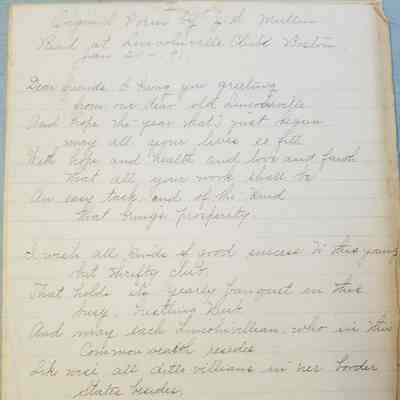 Original Poem by J. S. Mullin
Read at Lincolnville Club Boston
Jan 20
Dear friends, I bring you greeting
from our dear old Lincolnville
And hope the year that's just begun
may all your lives so fill
With hope and health and love and faith
that all your work shall be
An easy task, and of the kind
that brings prosperity.
I wish all kinds of good success to this young
but thrifty club,
That holds its yearly banquet in this
busy, hustling Hub
And may each Lincolnvillian, who in this
Commonwealth resides
Like wise all ditto villians in her border
States besides.